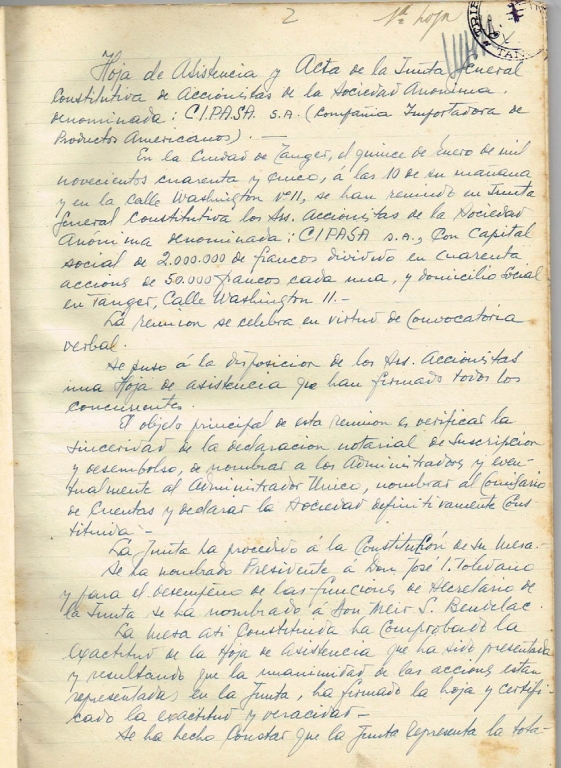 2 1ª hoja
TRIB
TAN
Hoja de Asistencia y Acta de la Junta General
Constitutiva de Accionistas de la Sociedad Anónima
denominada: CIPASA S.A. (Compañia Importadora de
Productos Americanos). —
En la Ciudad de Tanger, el quince de Enero de mil
novecientos cuarenta y cinco, á las 10 de su mañana
y en la Calle Washington nº 11, se han reunido en Junta
General Constitutiva los Srs. Accionistas de la Sociedad
Anónima denominada: CIPASA S.A., con Capital
social de 2.000.000 de francos dividido en cuarenta
acciones de 50.000 francos cada una, y domicilio social
en Tanger, Calle Washington 11.—
La reunion se celebra en virtud de Convocatoria
verbal.
Se puso á la disposicion de los Srs. Accionistas
una Hoja de asistencia que han firmado todos los
concurrentes.
El objeto principal de esta reunion es verificar la
sinceridad de la declaracion notarial de suscripcion
y desembolso, de nombrar a los Administradores y even-
tualmente al Administrador Unico, nombrar al Comisario
de Cuentas y declarar la Sociedad definitivamente Cons-
tituida.—
La Junta ha procedido á la Constitución de su Mesa.—
Se ha nombrado Presidente á Don José I. Toledano
y para el desempeño de las funciones de Secretario de
la Junta se ha nombrado á Don Meir S. Bendelac.
La Mesa asi Constituida ha Comprobado la
exactitud de la Hoja de asistencia que ha sido presentada
y resultando que la unanimidad de las acciones estan
representadas en la Junta, ha firmado la hoja y certifi-
cado la exactitud y veracidad—
Se ha hecho Constar que la Junta representa la tota-